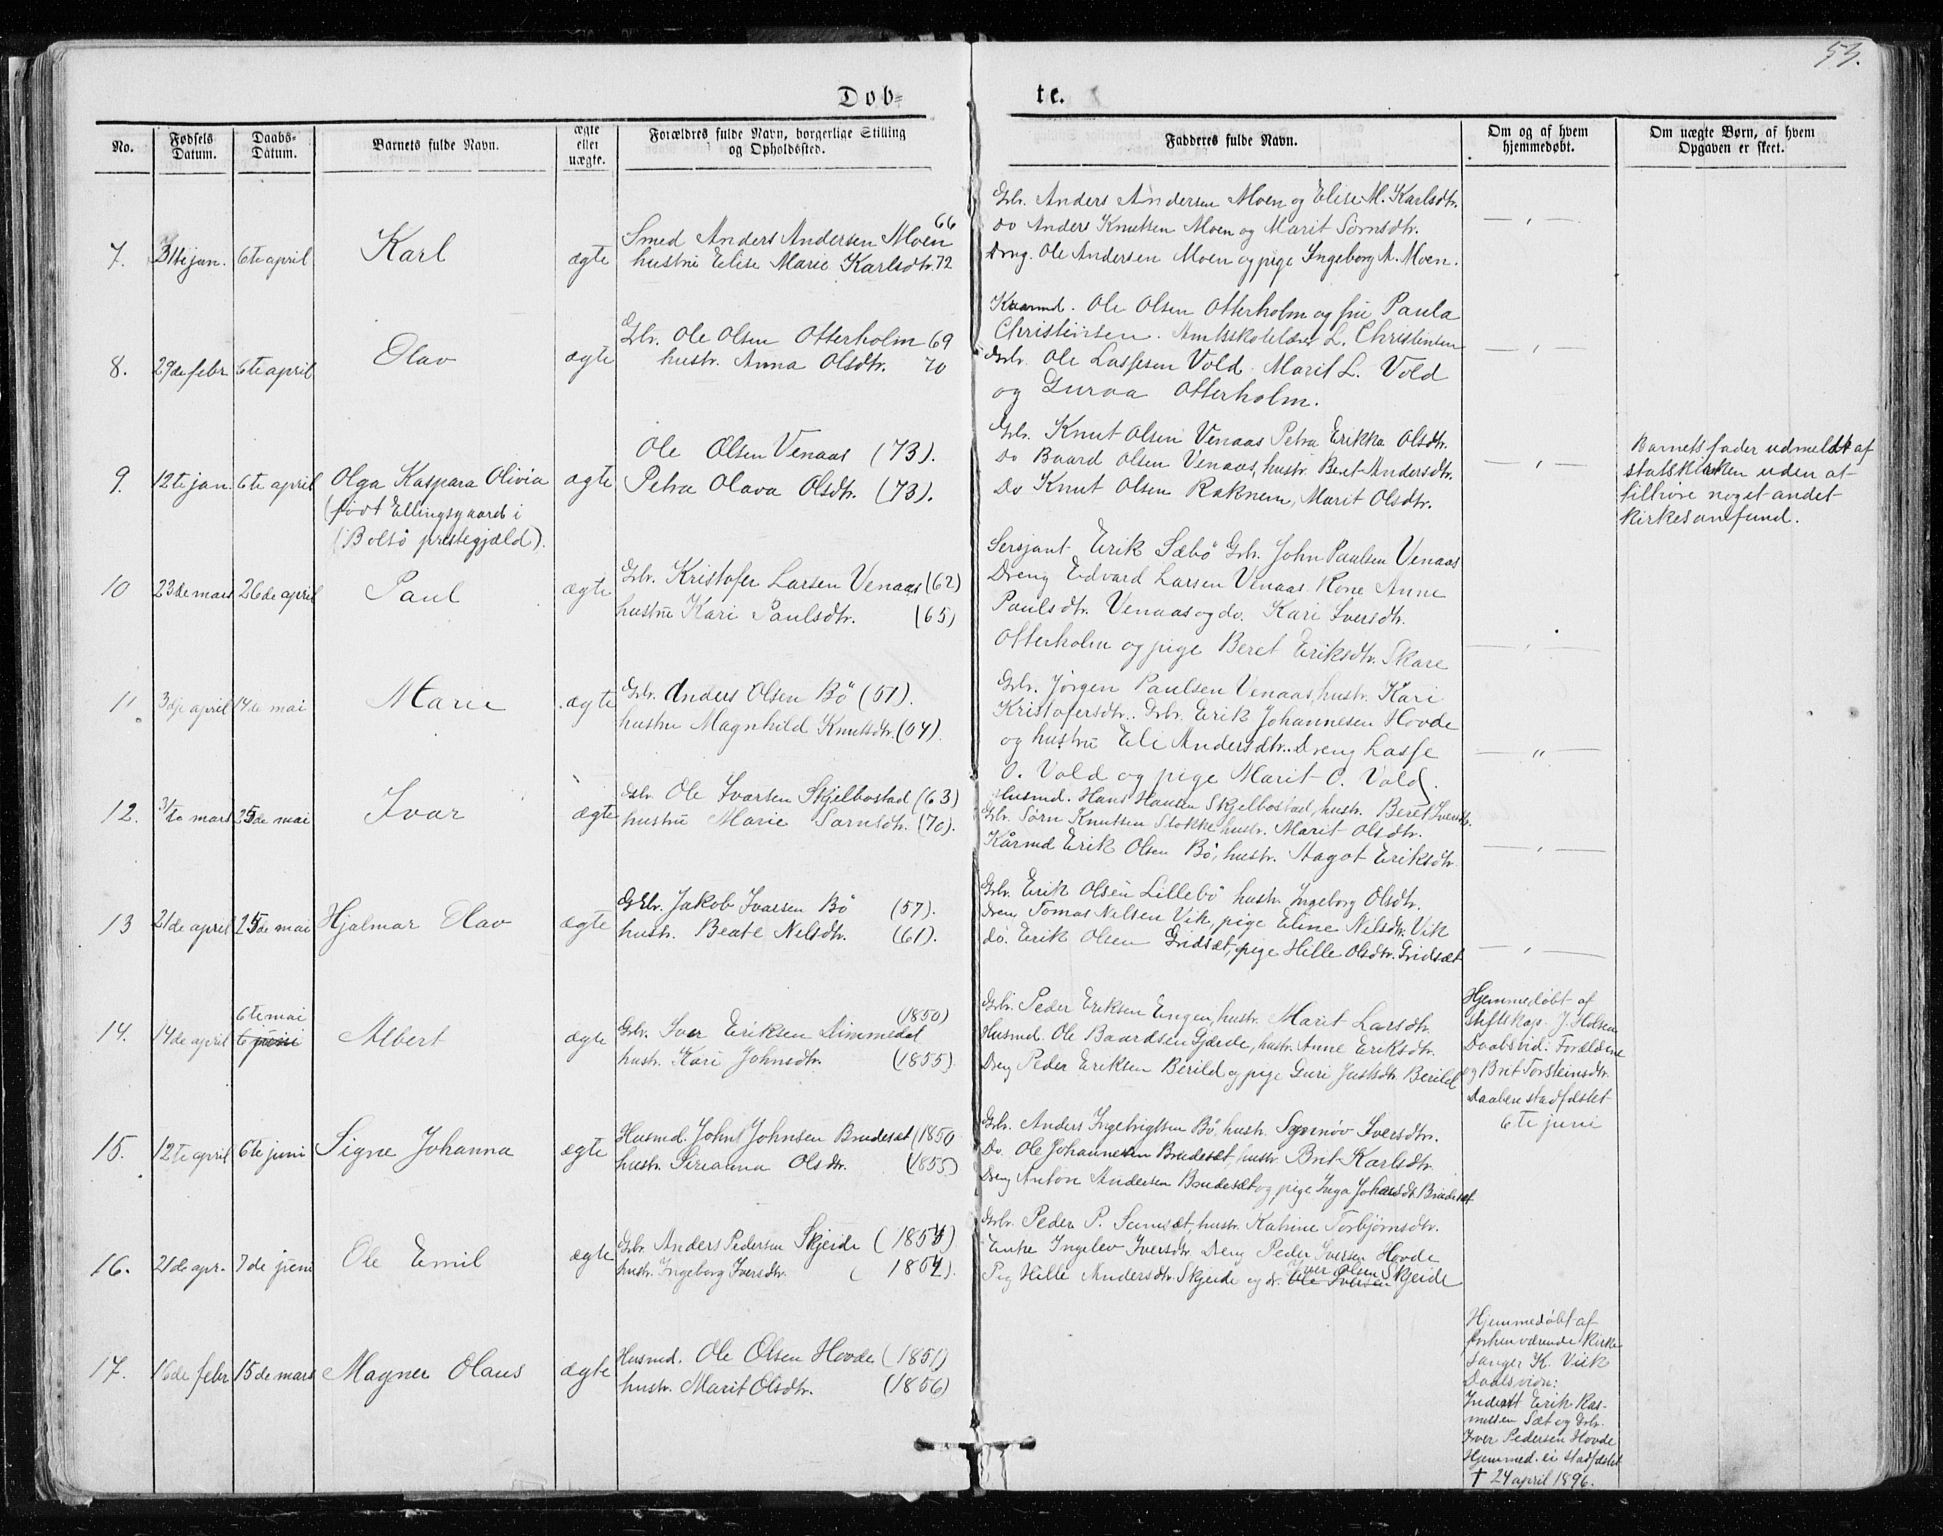 53.
Døb=
te.
No.
Fødsels Datum.
Daabs- Datum.
Barnets fulde Navn.
ægte eller uægte.
Forældres fulde Navn, borgerlige Stilling og Opholdssted.
Fadderes fulde Navn.
Om og af hvem hjemmedøbt.
Om uægte Børn, af hvem Opgaven er skeet.
7. 31te jan. 6te april Karl ægte
Smed Anders Andersen Moen 66
hustru Elise Marie Karlsdtr. 72
Gbr. Anders Andersen Moen og Elise M. Karlsdtr.
do Anders Knutsen Moen og Marit Sørnsdtr.
Dreng. Ole Andersen Moen og pige Ingeborg A. Moen.
8. 29de febr 6te april Olav ægte
Gbr. Ole Olsen Otterholm 69
hustr. Anna Olsdtr. 70
Kaarmd. Ole Olsen Otterholm og fru Paula
Christensen. Amtsskolelærer L. Christensen
Gbr. Ole Lassesen Vold. Marit L. Vold
og Guroa Otterholm.
9. 12te jan. 6te april Olga Kaspara Olivia ægte
(født Ellingsgaard i
(Bolsö prestegjæld).
Ole Olsen Venaas (73).
Petra Olava Olsdtr. (73).
Gbr. Knut Olsen Venaas Petra Erikka Olsdtr.
Do Baard Olsen Venaas, hustr. Beret Andersdtr.
Do Knut Olsen Raknem, Marit Olsdtr.
Barnets fader udmeldt af
statskirken uden at
tilhøre noget andet
kirkesamfund.
10 23de mars 26de april Paul ægte
Gbr. Kristofer Larsen Venaas (62)
hustru Kari Paulsdtr. (65)
Sersjant Erik Sæbö Gbr. John Paulsen Venaas
Dreng Edvard Larsen Venaas Kone Anne
Paulsdtr. Venaas og do. Kari Iversdtr.
Otterholm og pige Beret Eriksdtr. Skare
11 3dje april 14de mai Marie ægte
Gbr. Anders Olsen Bö (51).
hustru Magnhild Knutsdtr. (54).
Gbr. Jørgen Paulsen Venaas, hustr. Kari
Kristofersdtr. Gbr. Erik Johannesen Hovde
og hustru Eli Andersdtr. Dreng Lasse
O. Vold og pige Marit O. Vold.
12. 31te mars 25de mai Ivar ægte
Gbr. Ole Ivarsen Skjelbostad (63)
hustru Marie Sørnsdtr. (70).
Husmd. Hans Hansen Skjelbostad, hustr. Beret Iversdtr.
Gbr. Sørn Knutsen Stokke hustr. Marit Olsdtr.
Kårmd Erik Olsen Bö, hustr. Aagot Eriksdtr
13 21de april 25de mai Hjalmar Olav ægte
Gbr. Jakob Ivarsen Bö (57).
hustr. Beate Nelsdtr. (61).
Gbr. Erik Olsen Lillebö hustr. Ingeborg Olsdtr.
Dren Tomas Nelsen Vik, pige Eline Nilsdtr. Vik
do. Erik Olsen Gridsæt, pige Hille Olsdtr. Gridsæt
14. 14de april 6te mai
6 juni Albert ægte
Gbr. Iver Eriksen Dimmedal (1850)
hustr. Kari Johnsdtr. (1855)
Gbr. Peder Eriksen Engen, hustr. Marit Larsdtr.
Husmd. Ole Baardsen Gjærde, hustr. Anne Eriksdtr.
Dreng Peder Eriksen Berild og pige Guri Jetsdtr. Berild
Hjemmedøbt af
stiftskap. J. Holsen
Daabsvid. Forældrene
og Brit Torsteinsdtr.
Daaben stadfæstet
6te juni
15. 12te april 6te juni Signe Johanna ægte
Husmd. John Johnsen Brudesæt (1850
hustr. Sirianna Olsdtr. (1855)
Gbr. Anders Ingebrigtsen Bö, hustr. Synnöv Iversdtr.
Do. Ole Johannesen Brudesæt, hustr. Brit Karlsdtr.
Dreng Anton Andersen Brudesæt og pige Inga Johansdtr. Brudesæt
16. 21de apr. 7de juni Ole Emil ægte
Gbr. Anders Pedersen Skjeide (1854)
hustr. Ingeborg Iversdtr. (1854).
Gbr. Peder P. Sæmsæt, hustr. Katrine Torbjørnsdtr.
Enke Ingelev Iversdtr. Dreng Peder Iversen Hovde
Iver Olsen
Pig Hille Andersdtr. Skjeide og dr. Ole Iversen Skjeide
17. 16de febr 15de mars Magner Olaus ægte
Husmd. Ole Olsen Hovde (1851)
hustr. Marit Olsdtr. (1856)
Hjemmedøbt af
forhenværende kirke
sanger K. Viik
Daabsvidn:
Inderst Erik Ras-
mussen Sæt og Gbr.
Iver Pedersen Hovde
Hjemmed. ei stadfæstet
† 24 april 1896.